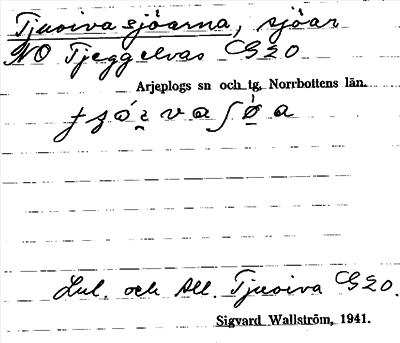 Tjuoivasjöarna, sjöar
NO Tjeggelvas G20
Arjeplogs sn och tg, Norrbottens län.
Lul. och All. Tjuoiva G20.
Sigvard Wallström, 1941.